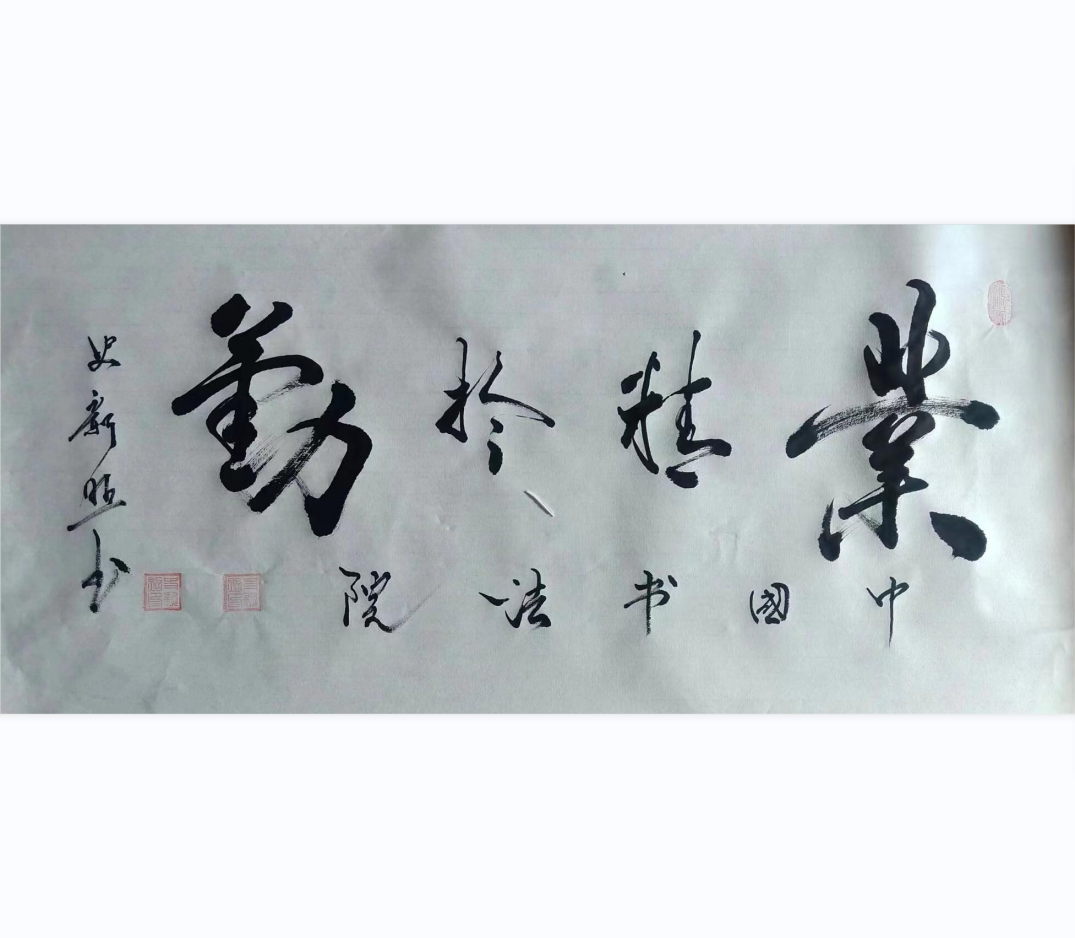 業精於勤
中國书法院
史新照书